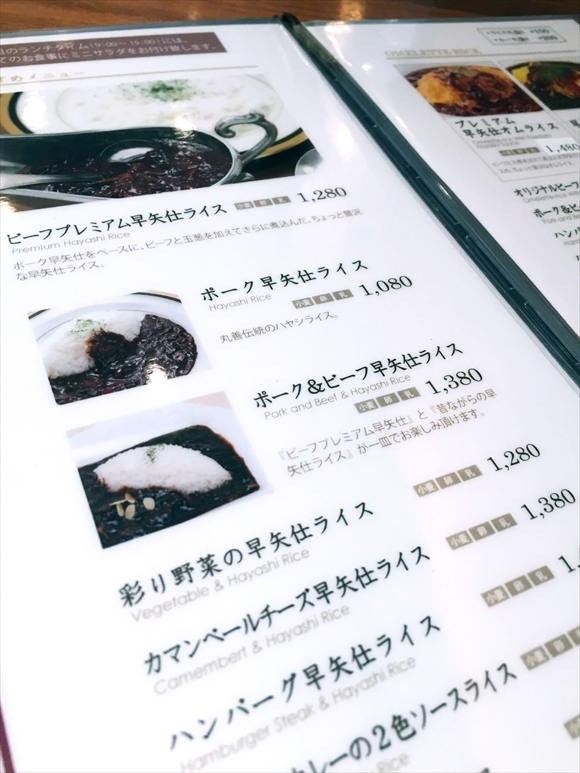 のランチタイム(9:00~19:00)には、
てのお食事にミニサラダをお付け致します。
すめメニュー
ビーフプレミアム早矢仕ライス 小麦 卵 乳 1,280
Premium Hayashi Rice
ポーク早矢仕をベースに、ビーフと玉葱を加えてさらに煮込んだ、ちょっと贅沢
な早矢仕ライス。
ポーク早矢仕ライス
Hayashi Rice 小麦 卵 乳 1,080
丸善伝統のハヤシライス。
ポーク&ビーフ早矢仕ライス
Pork and Beef & Hayashi Rice
小麦 卵 乳 1,380
『ビーフプレミアム早矢仕』と『昔ながらの早
矢仕ライス』が一皿でお楽しみ頂けます。
小麦 卵 乳 1,280
彩り野菜の早矢仕ライス
Vegetable & Hayashi Rice
小麦 卵 乳 1,380
カマンベールチーズ早矢仕ライス
Camembert & Hayashi Rice
小麦 卵 乳
ハンバーグ早矢仕ライス
Hamburger Steak & Hayashi Rice
小麦 卵 乳
カレーの2色ソースライス
OMELETTE RICE
プレミアム
早矢仕オムライス
1,480
オリジナルビーフ
ポーク&ビ
ハンバ